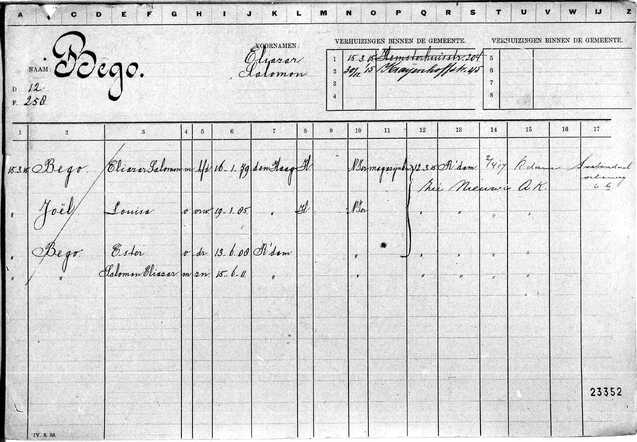 A B C D E F G H I J K L M N O P Q R S T U V W X Y Z
NAAM Bego.
D 12
F. 258
VOORNAMEN
Eliazar
Salomon
VERHUIZINGEN BINNEN DE GEMEENTE.
1 15.3.15 Hemsterhuisstr. 204
2 30/12 15 Kraijenhoffstr. 45
3
4
VERHUIZINGEN BINNEN DE GEMEENTE.
5
6
7
8
1 2 3 4 5 6 7 8 9 10 11 12 13 14 15 16 17
15.3.15 Bego Eliazar Salomon m 16-1-79 den Haag NIsr 12.3.15 R'dam 2/4 17 Rdam
Zie Nieuwe A.K.
" Joël Louisa v vrw 19-1-05 " NIsr " " " "
" Bego Ester v dr 13-6-08 R'dam " " " "
" " Salomon Eliazar m zn 15-6-11 " " " " "
23352